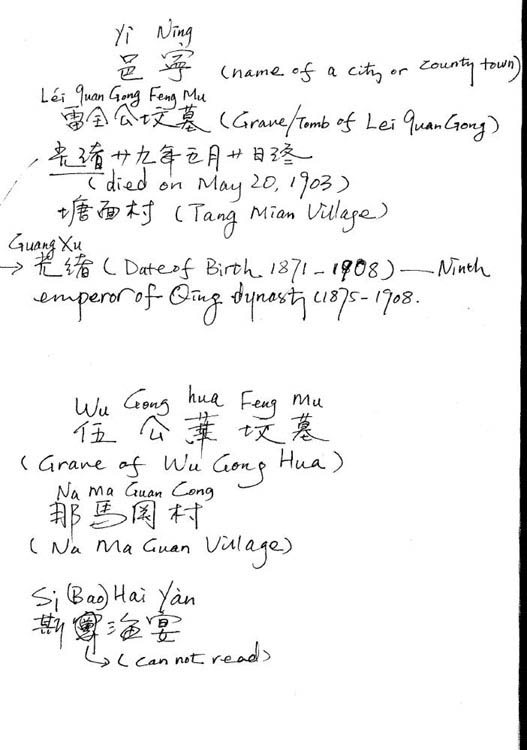 Yi Ning
邑寧 (name of a city or county town)
Léi Quan Gong Feng Mu
雷全公坟墓 (Grave/Tomb of Lei Quan Gong)
光緒廿九年五月廿日终
(died on May 20, 1903)
塘面村 (Tang Mian Village)
Guang Xu
→ 光緒 (Date of Birth 1871-1908) — Ninth
emperor of Qing dynasty (1875-1908.
Wu Gong hua Feng Mu
伍公華坟墓
(Grave of Wu Gong Hua)
Na Ma Guan Cong
那馬岡村
(Na Ma Guan Village)
Si (Bao) Hai Yàn
斯 海宴
(can not read)